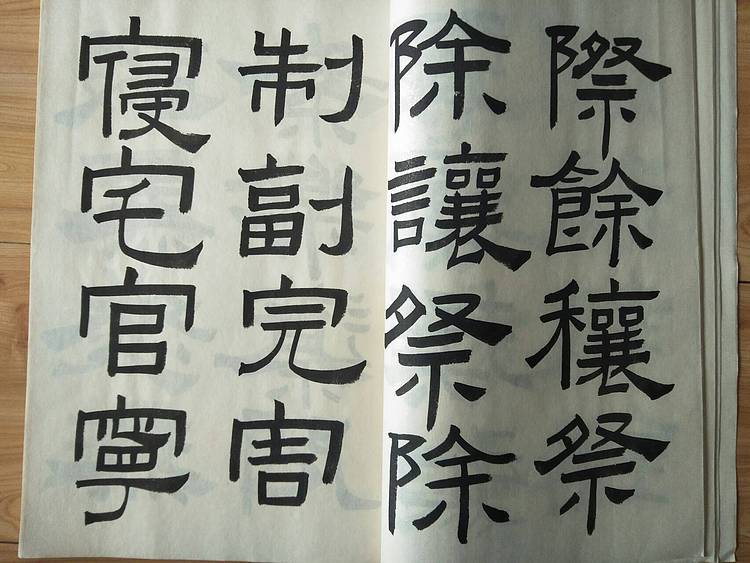 際餘穰祭
除讓祭除
制副完害
寑宅官寧